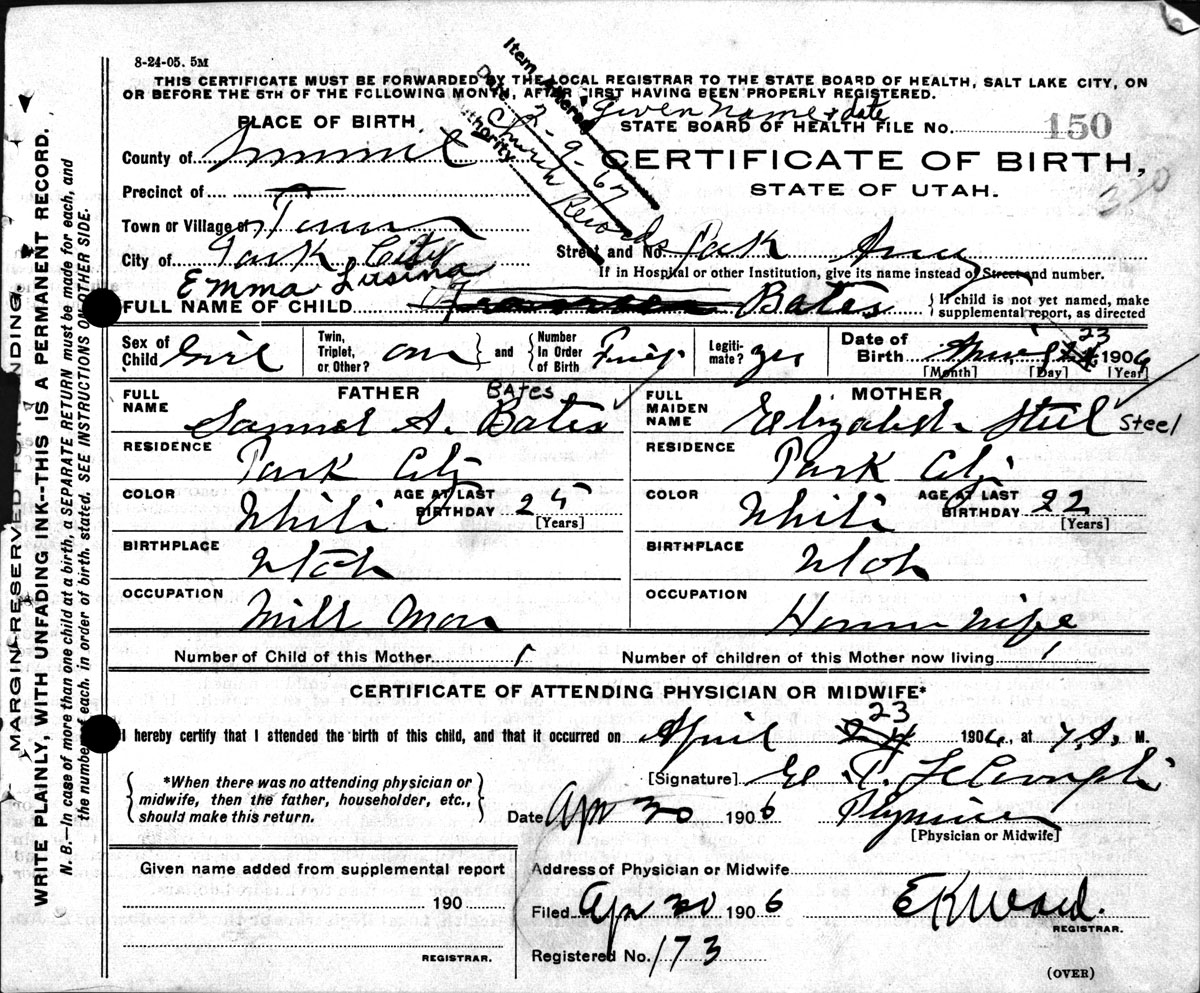 8-24-05. 5M
THIS CERTIFICATE MUST BE FORWARDED BY THE LOCAL REGISTRAR TO THE STATE BOARD OF HEALTH, SALT LAKE CITY, ON
OR BEFORE THE 5TH OF THE FOLLOWING MONTH, AFTER FIRST HAVING BEEN PROPERLY REGISTERED.
Item Altered Given name & date
Date 2-9-67
Authority Church Records
PLACE OF BIRTH
STATE BOARD OF HEALTH FILE No. 150
County of Summit
CERTIFICATE OF BIRTH,
320
STATE OF UTAH.
Precinct of
Town or Village of
City of Park City
Street and No. Park
If in Hospital or other Institution, give its name instead of Street and number.
Emma Lusina
FULL NAME OF CHILD Bates
If child is not yet named, make supplemental report, as directed
Sex of Child Girl
Twin, Triplet, or Other? and Number In Order of Birth
Legitimate? yes
Date of Birth April 23 1906
[Month] [Day] [Year]
FATHER
FULL NAME Samuel A. Bates
BATES
RESIDENCE Park City
COLOR White AGE AT LAST BIRTHDAY 25 [Years]
BIRTHPLACE Utah
OCCUPATION Mill Man
MOTHER
FULL MAIDEN NAME Elizabeth Steel
Steel
RESIDENCE Park City
COLOR White AGE AT LAST BIRTHDAY 22 [Years]
BIRTHPLACE Utah
OCCUPATION House wife
Number of Child of this Mother 1 Number of children of this Mother now living 1
CERTIFICATE OF ATTENDING PHYSICIAN OR MIDWIFE*
I hereby certify that I attended the birth of this child, and that it occurred on April 23 1906, at 7 A. M.
*When there was no attending physician or midwife, then the father, householder, etc., should make this return.
[Signature]
Date Apr 30 1906 Physician
[Physician or Midwife]
Given name added from supplemental report
190
REGISTRAR.
Address of Physician or Midwife
Filed Apr 30 1906 E K Ward.
REGISTRAR.
Registered No. 173
(OVER)
MARGIN RESERVED FOR BINDING.
WRITE PLAINLY, WITH UNFADING INK--THIS IS A PERMANENT RECORD.
N. B.—In case of more than one child at a birth, a SEPARATE RETURN must be made for each, and
the number of each, in order of birth, stated. SEE INSTRUCTIONS ON OTHER SIDE.